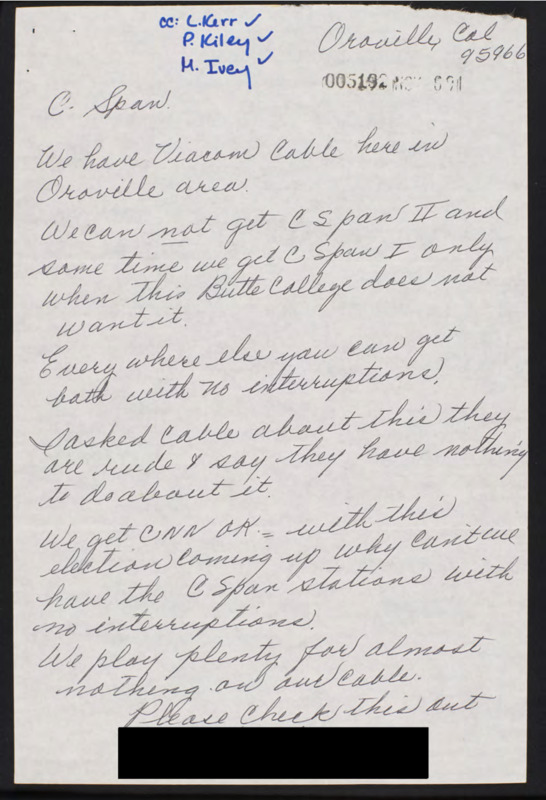 cc: L. Kerr ✓
P. Kiley ✓
M. Ivey ✓
Oroville, Cal
95966
005192 NOV
C. Span.
We have Viacom Cable here in
Oroville area.
We can not get C Span II and
some time we get C Span I only
when this Butte College does not
want it.
Every where else you can get
both with no interruptions.
I asked cable about this they
are rude & say they have nothing
to do about it.
We get CNN OK = with this
election coming up why cant we
have the C Span stations with
no interruptions.
We play plenty for almost
nothing on our cable.
Please Check this out